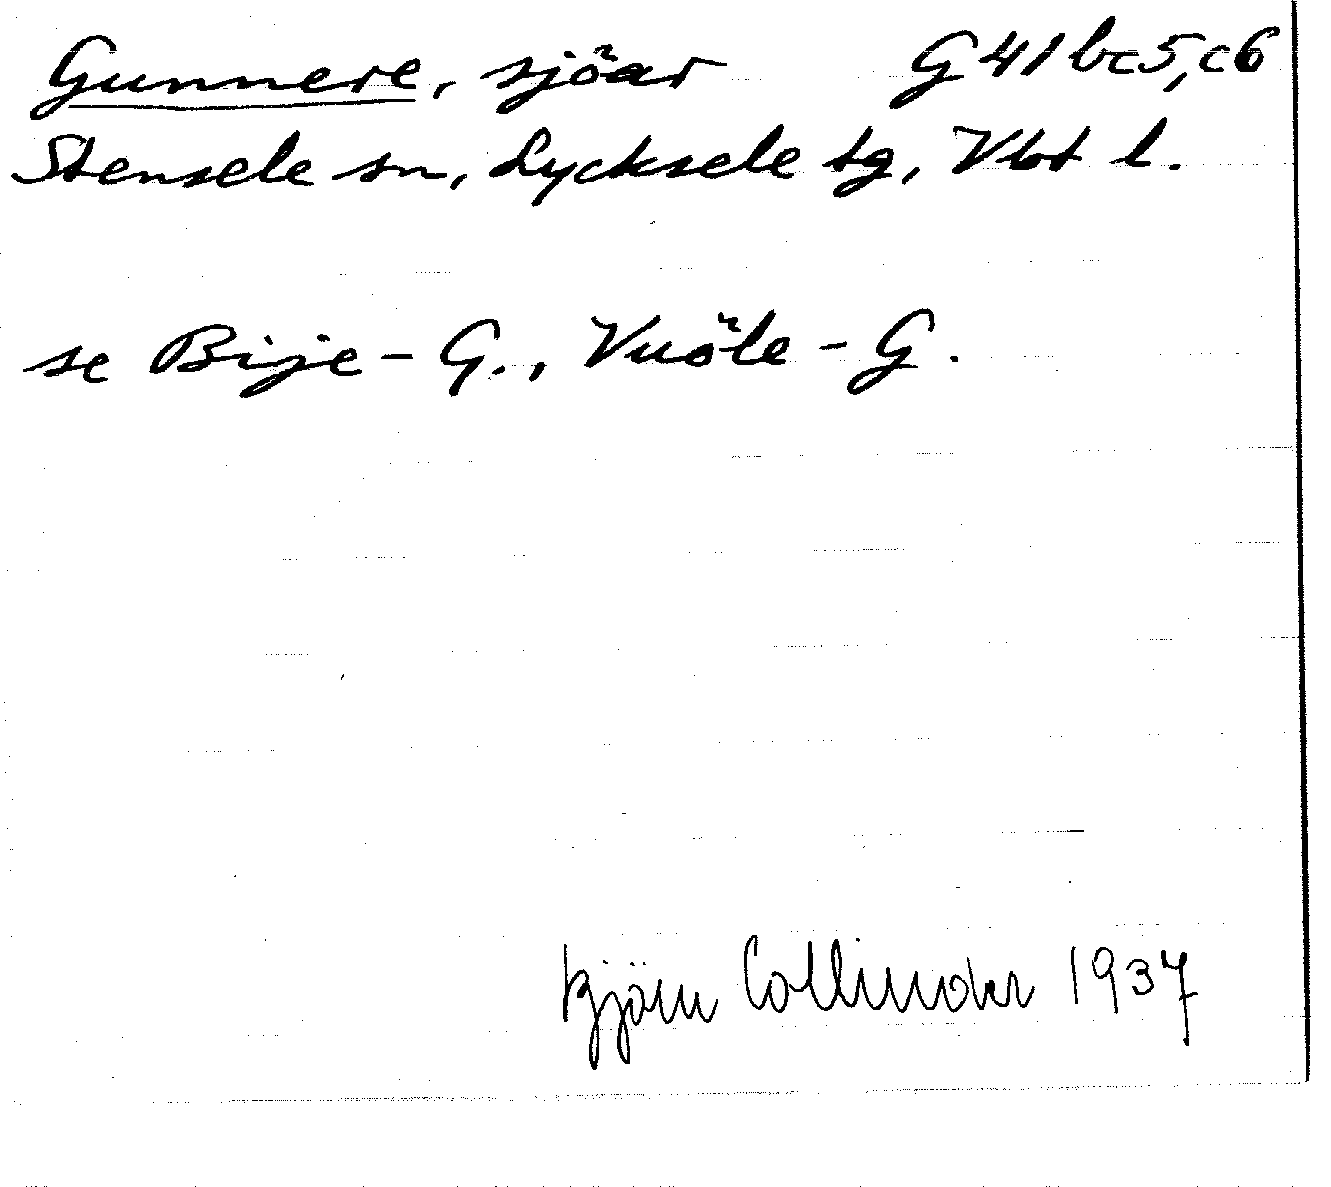 Gunnere, sjöar G 41 bc5, c6
Stensele sn, Lycksele tg, Vbt l.
se Bije-G., Vuöle-G.
Björn Collinder 1937